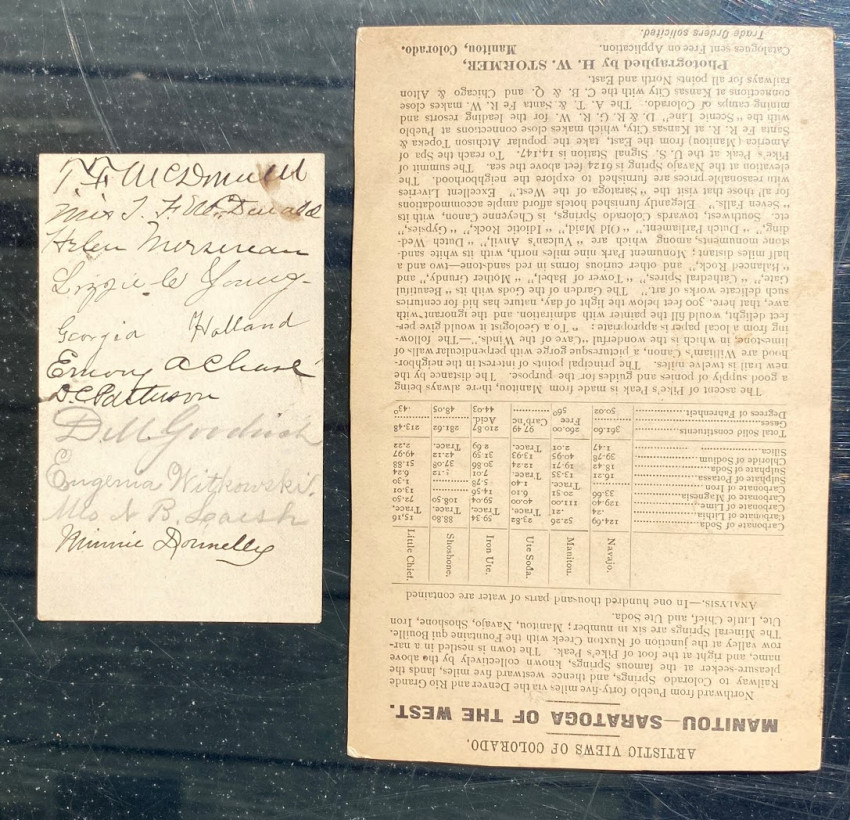 T. F. McDonald
Mrs T. F. McDonald
Helen Mersereau
Lizzie W Young
Georgia Holland
Emory A Chase
D. C. Patterson
D. M. Goodrich
Eugenia Witkowski.
Mrs N. B.
Minnie Donnelly
ARTISTIC VIEWS OF COLORADO.
MANITOU—SARATOGA OF THE WEST.
Northward from Pueblo forty-five miles via the Denver and Rio Grande
Railway to Colorado Springs, and thence westward five miles, lands the
pleasure-seeker at the famous Springs, known collectively by the above
name, and right at the foot of Pike's Peak. The town is nestled in a nar-
row valley at the junction of Ruxton Creek with the Fountaine qui Bouille.
The Mineral Springs are six in number; Manitou, Navajo, Shoshone, Iron
Ute, Little Chief, and Ute Soda.
ANALYSIS.—In one hundred thousand parts of water are contained
Navajo. Manitou. Ute Soda. Iron Ute. Shoshone. Little Chief.
Carbonate of Soda 124.69 52.26 23.82 59.34 88.80 15.16
Carbonate of Lithia .24 .21 Trace. Trace. Trace. Trace.
Carbonate of Lime 129.40 111.00 40.00 59.04 108.50 72.50
Carbonate of Magnesia 33.66 20.51 6.10 14.56 13.01
Carbonate of Iron Trace. 1.40 5.78 1.30
Sulphate of Potassa 16.21 13.35 Trace. 7.01 5.12 6.24
Sulphate of Soda 18.42 19.71 12.24 30.86 37.08 51.88
Chloride of Sodium 39.78 40.95 13.93 31.59 42.12 40.97
Silica 1.47 2.01 Trace. 2.69 Trace. 2.22
Total Solid constituents 361.60 260.00 97.49 210.87 281.62 213.48
Gasses Free Carb'nc Acid
Degrees of Fahrenheit 50.02 56° 44.03 48.05 43°
The ascent of Pike's Peak is made from Manitou, there always being
a good supply of ponies and guides for the purpose. The distance by the
new trail is twelve miles. The principal points of interest in the neighbor-
hood are William's Canon, a picturesque gorge with perpendicular walls of
limestone, in which is the wonderful "Cave of the Winds."—The follow-
ing from a local paper is appropriate: "To a Geologist it would give per-
fect delight, would fill the painter with admiration, and the ignorant with
awe, that here, 300 feet below the light of day, nature has hid for centuries
such delicate works of art." The Garden of the Gods with its "Beautiful
Gate," "Cathedral Spires," "Tower of Babel," "Mother Grundy," and
"Balanced Rock," and other curious forms in red sand-stone—two and a
half miles distant; Monument Park nine miles north, with its white sand-
stone monuments, among which are "Vulcan's Anvil," "Dutch Wed-
ding," "Dutch Parliament," "Old Maid," "Idiotic Rock," "Gypsies,"
etc. Southwest, towards Colorado Springs, is Cheyenne Canon, with its
"Seven Falls." Elegantly furnished hotels afford ample accommodations
for all those that visit the "Saratoga of the West." Excellent Liveries
with reasonable prices are furnished to explore the neighborhood. The
elevation at the Navajo Spring is 6124 feet above the sea. The summit of
Pike's Peak at the U. S. Signal Station is 14,147. To reach the Spa of
America (Manitou) from the East, take the popular Atchison Topeka &
Santa Fe R. R. at Kansas City, which makes close connections at Pueblo
with the "Scenic Line" D. & R. G. R. W. for the leading resorts and
mining camps of Colorado. The A. T. & Santa Fe R. W. makes close
connections at Kansas City with the C. B. & Q. and Chicago & Alton
railways for all points North and East.
Photographed by H. W. STORMER,
Manitou, Colorado.
Catalogues sent Free on Application.
Trade Orders solicited.